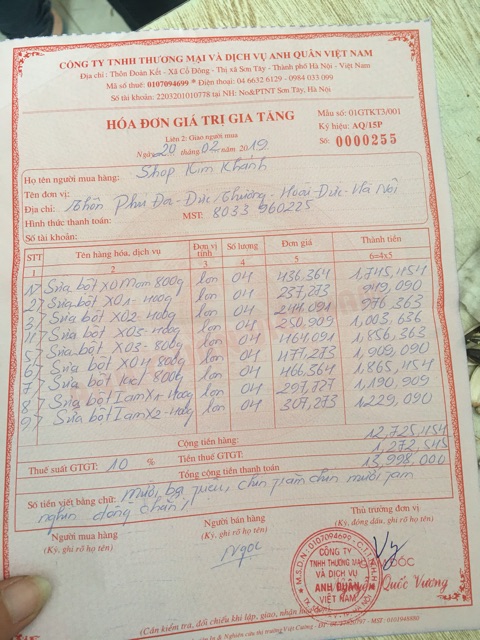 CÔNG TY TNHH THƯƠNG MẠI VÀ DỊCH VỤ ANH QUÂN VIỆT NAM
Địa chỉ : Thôn Đoàn Kết - Xã Cổ Đông - Thị xã Sơn Tây - Thành phố Hà Nội
Mã số thuế: 0107094699 * Điện thoại: 04 6632 6129 - 0984 033 099
Số tài khoản: 2203201010778 tại NH: No&PTNT Sơn Tây, Hà Nội
HÓA ĐƠN GIÁ TRỊ GIA TĂNG
Mẫu số: 01GTKT3/001
Liên 2: Giao người mua
Ký hiệu: AQ/15P
Ngày 20 tháng 02 năm 2019
Số: 0000255
Họ tên người mua hàng: Shop Kim Khánh
Tên đơn vị:
Địa chỉ: Thôn Phú Đa - Đức Thượng - Hoài Đức - Hà Nội
Hình thức thanh toán: MST: 8033 960225
Số tài khoản:
STT Tên hàng hóa, dịch vụ Đơn vị tính Số lượng Đơn giá Thành tiền
1 2 3 4 5 6=4x5
1 Sữa bột XO Mom 800g lon 04 436,364 1,745,454
2 Sữa bột XO1- 400g lon 04 237,273 949,090
3 Sữa bột XO2- 400g lon 04 244,091 976,363
4 Sữa bột XO3- 400g lon 04 250,909 1,003,636
5 Sữa bột XO3- 800g lon 04 464,091 1,856,363
6 Sữa bột XO4 800g lon 04 477,273 1,909,090
7 Sữa bột 800g lon 04 466,364 1,865,454
8 Sữa bột IamX1- 400g lon 04 297,727 1,190,909
9 Sữa bột IamX2- 400g lon 04 307,273 1,229,090
Cộng tiền hàng: 12,725,454
Thuế suất GTGT: 10 % Tiền thuế GTGT: 1,272,545
Tổng cộng tiền thanh toán 13,998,000
Số tiền viết bằng chữ: Mười ba triệu, chín trăm chín mươi tám
nghìn đồng chẵn./
Người mua hàng Người bán hàng Thủ trưởng đơn vị
(Ký, ghi rõ họ tên) (Ký, ghi rõ họ tên) (Ký, đóng dấu, ghi rõ họ tên)
Ngọc
M.S.D.N: 0107094699
CÔNG TY
TNHH THƯƠNG MẠI
VÀ DỊCH VỤ
ANH QUÂN
VIỆT NAM
Quốc Vương
(Cần kiểm tra, đối chiếu khi lập, giao, nhận hóa đơn)